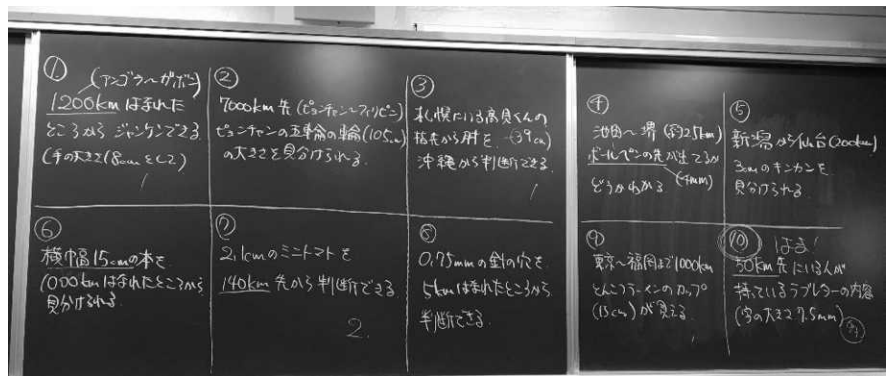 ①
(アンゴラ〜ガボン)
1200km はなれた
ところから ジャンケンできる
(手の大きさ18cmとして)
②
7000km 先 (ピョンチャン〜フィリピン)
ピョンチャンの五輪の輪(105cm)
の大きさを見分けられる
③
札幌にいる高見くんの
指先から肘を (39cm)
沖縄から判断できる
④
池田〜堺 (約25km)
ボールペンの先が出てるか
どうかわかる (4mm)
⑤
新潟から仙台(200km)
3cmのキンカンを
見分けられる
⑥
横幅15cmの本を
1000kmはなれたところから
見分けられる
⑦
2.1cmのミニトマトを
140km 先から判断できる
2
⑧
0.75mmの針の穴を
5kmはなれたところから
判断できる
⑨
東京〜福岡まで1000km
とんこつラーメンのカップ
(15cm)が見える
⑩
はま!
50km先にいる人が
持っているラブレターの内容
(字の大きさ7.5mm)